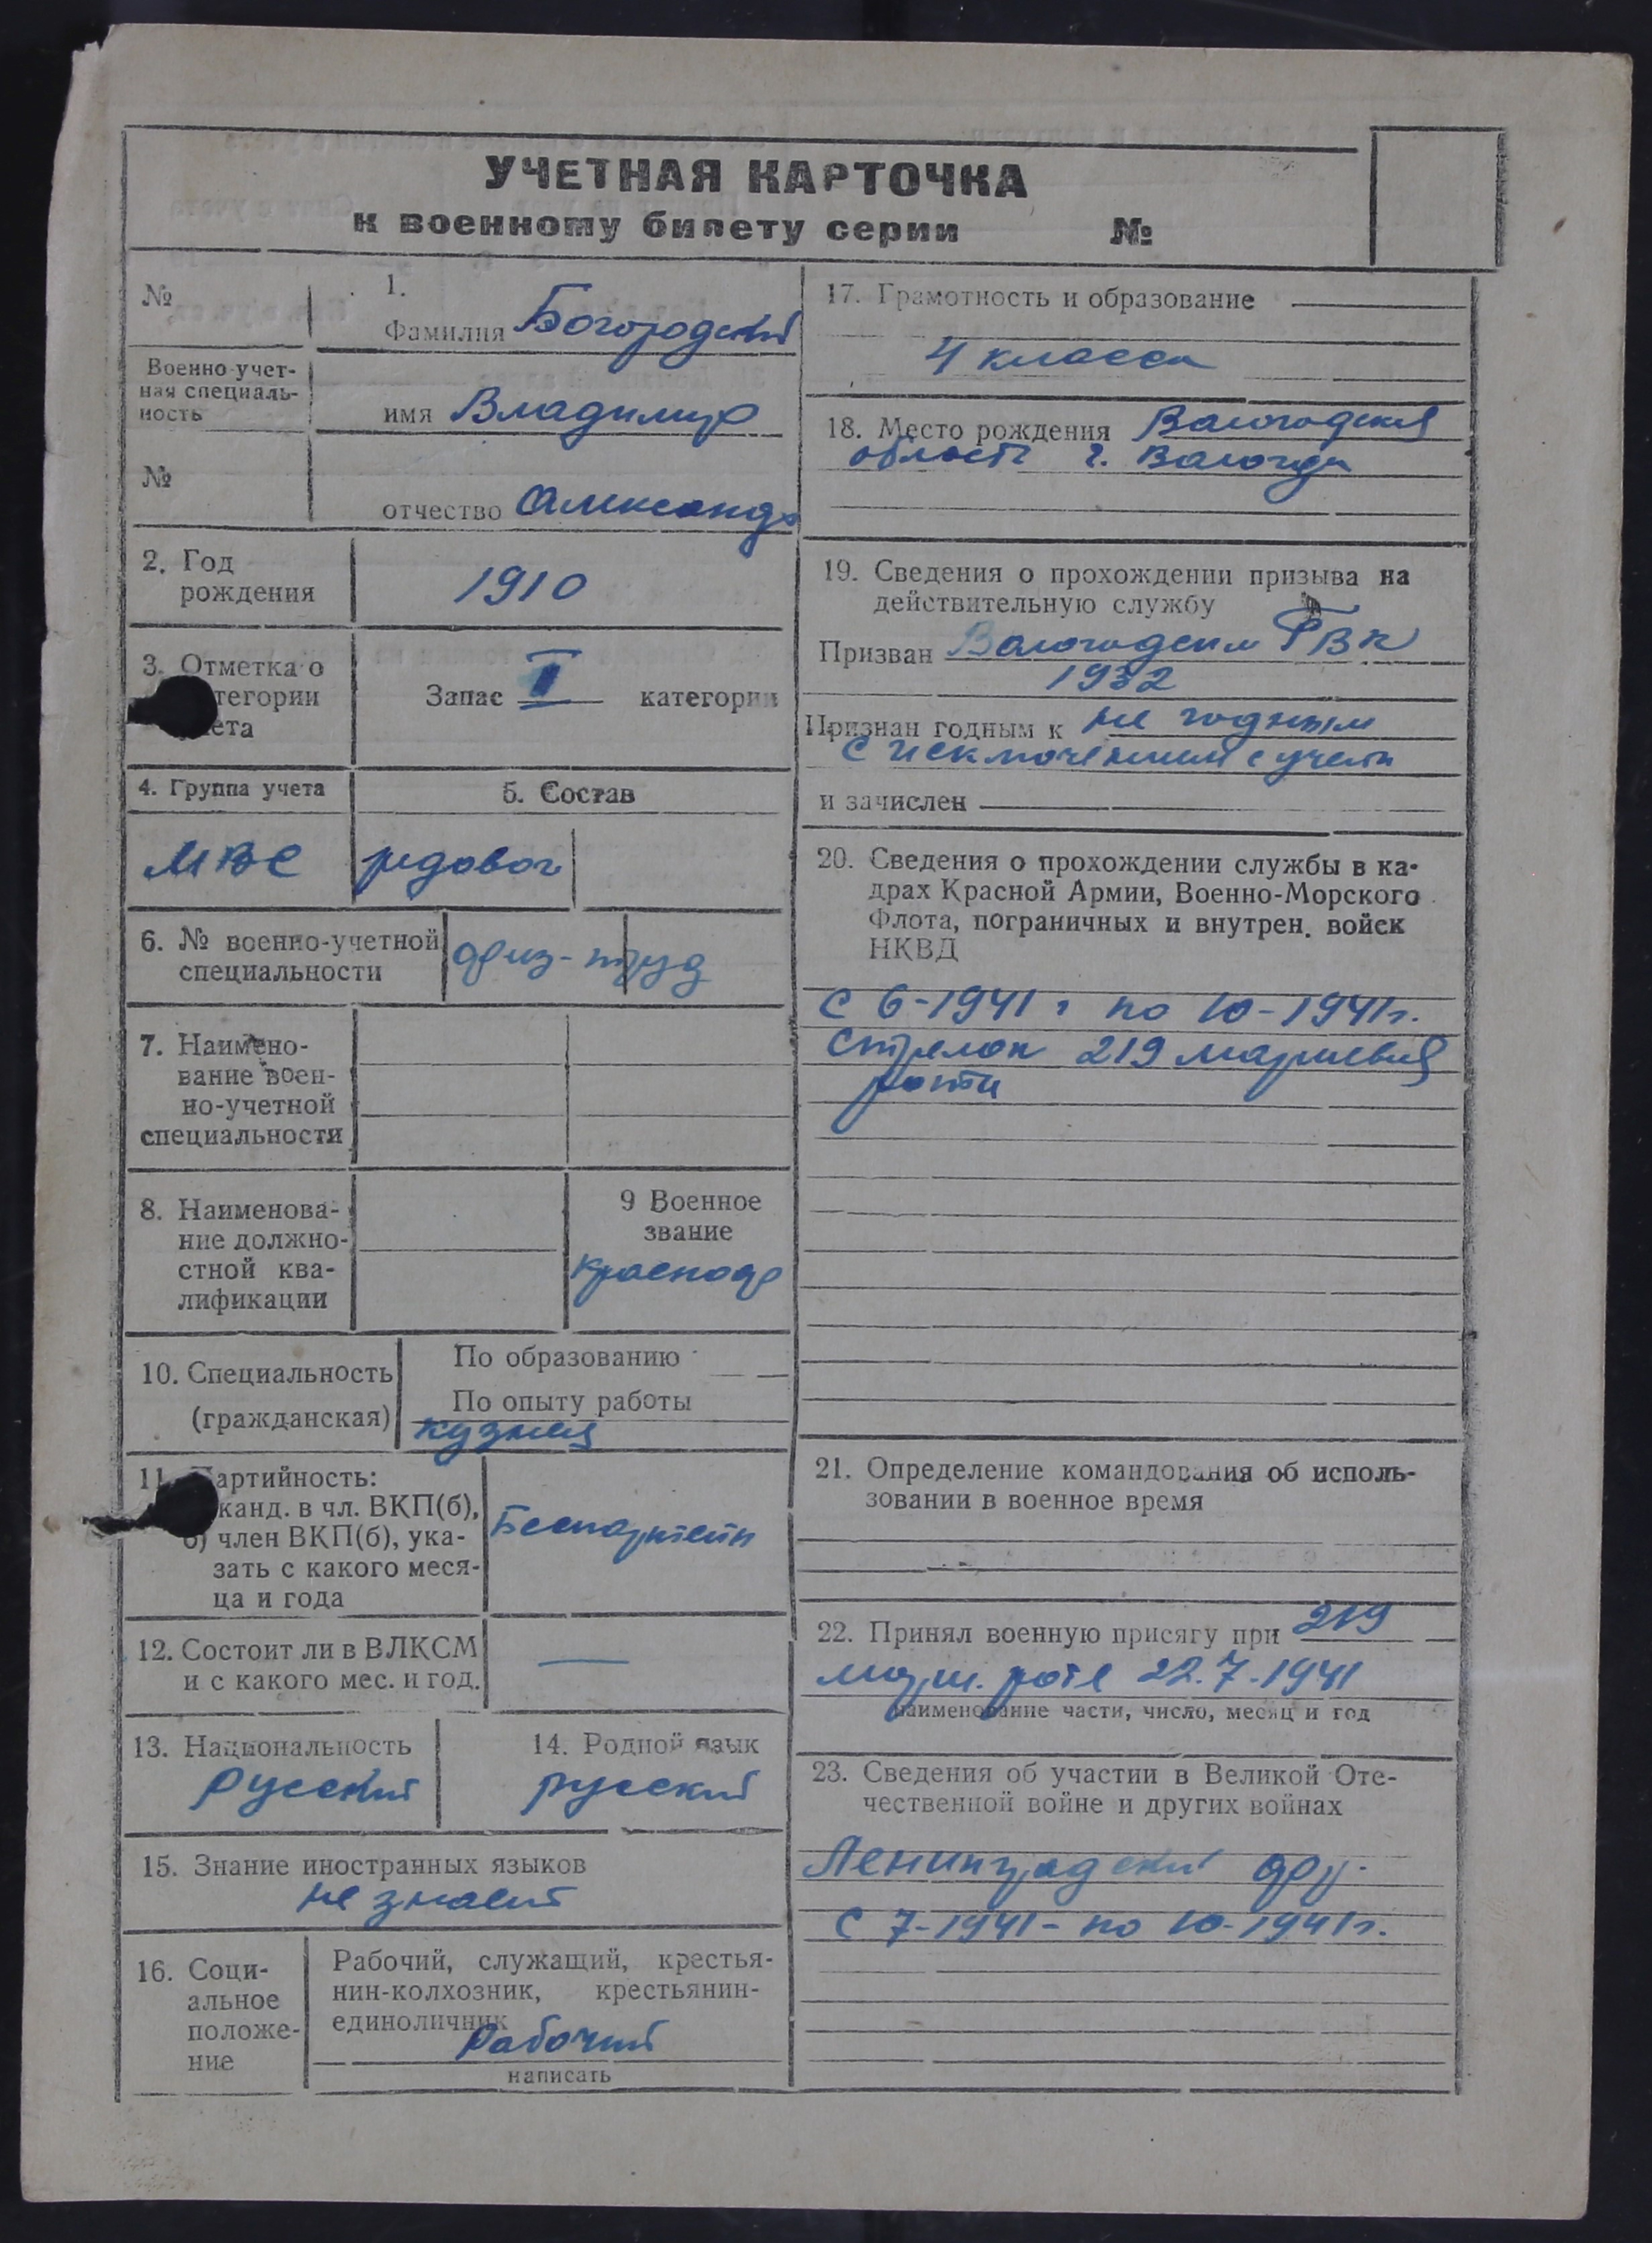 УЧЕТНАЯ КАРТОЧКА
к военному билету серии №
№
1.
Фамилия Богородский
Военно-учет-
ная специаль-
ность
имя Владимир
№
отчество Александр
2. Год
рождения
1910
3. Отметка о
тегории
ета
Запас II категории
4. Группа учета
5. Состав
МВС
рядовой
6. № военно-учетной
специальности
физ-труд
7. Наимено-
вание воен-
но-учетной
специальности
8. Наименова-
ние должно-
стной ква-
лификации
9 Военное
звание
красноар
10. Специальность
(гражданская)
По образованию
По опыту работы
кузнец
11. артийность:
канд. в чл. ВКП(б),
б) член ВКП(б), ука-
зать с какого меся-
ца и года
Беспартейн
12. Состоит ли в ВЛКСМ
и с какого мес. и год.
—
13. Национальность
Русский
14. Родной язык
русский
15. Знание иностранных языков
не знает
16. Соци-
альное
положе-
ние
Рабочий, служащий, крестья-
нин-колхозник, крестьянин-
единоличник
Рабочий
написать
17. Грамотность и образование
4 класса
18. Место рождения Вологодская
область г. Вологда
19. Сведения о прохождении призыва на
действительную службу
Призван Вологодским ГВК
1932
Признан годным к не годным
с исключением с учета
и зачислен
20. Сведения о прохождении службы в ка-
драх Красной Армии, Военно-Морского
Флота, пограничных и внутрен. войск
НКВД
С 6-1941 г по 10-1941г.
Стрелок 219 маршевая
рота
21. Определение командования об исполь-
зовании в военное время
22. Принял военную присягу при 219
марш. роте 22.7-1941
наименование части, число, месяц и год
23. Сведения об участии в Великой Оте-
чественной войне и других войнах
Ленинградский фр.
С 7-1941- по 10-1941г.